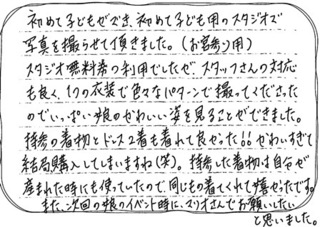 初めて子どもができ、初めて子ども用のスタジオで
写真を撮らせて頂きました。(お宮参り用)
スタジオ無料券の利用でしたが、スタッフさんの対応
も良く、1つの衣装で色々なパターンで撮ってくださった
のでいっぱい娘のかわいい姿を見ることができました。
持参の着物とドレス2着も着れて良かった!!かわいすぎて
結局購入してしまいますね(笑)。持参した着物は自分が
産まれた時にも使っていたので、同じもの着てくれて嬉かったです。
また、次回の娘のイベント時に、マリオさんでお願いしたい
と思いました。